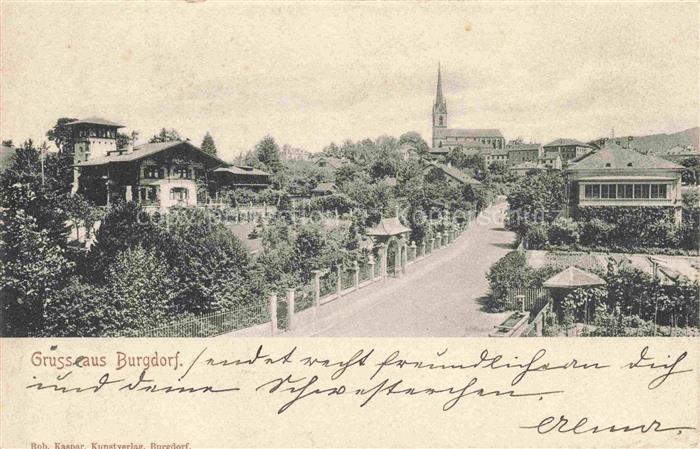 Grüsse aus Burgdorf. sendet recht freundlich an Dich
und deine Schwesterchen,
Alma.
Rob. Kaspar, Kunstverlag, Burgdorf.